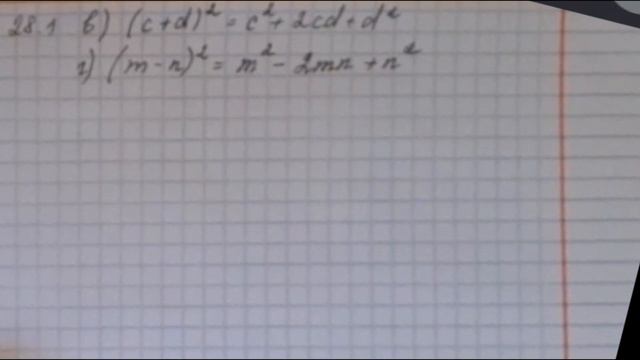 28.1 в) (c+d)² = c² + 2cd + d²
г) (m-n)² = m² - 2mn + n²